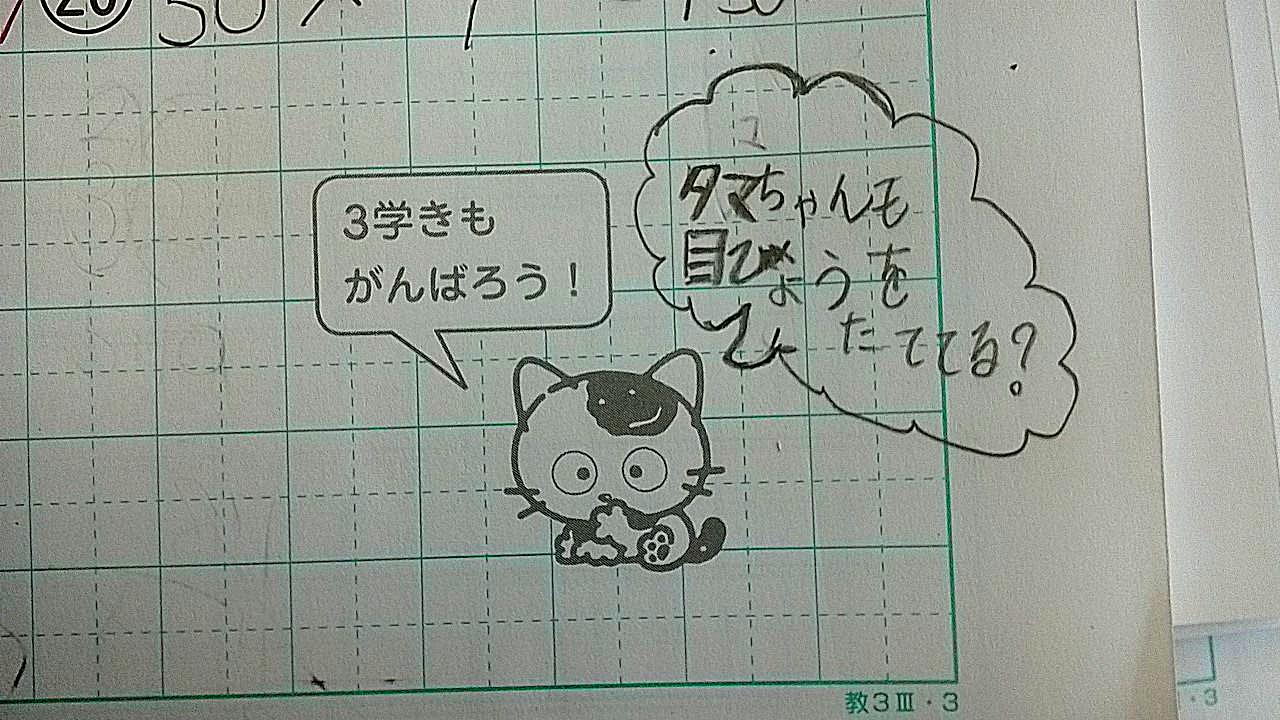 ⑳ 50×
3学きも
がんばろう！
タマちゃんも
目ひょうを
たててる？
教3Ⅲ・3
・3